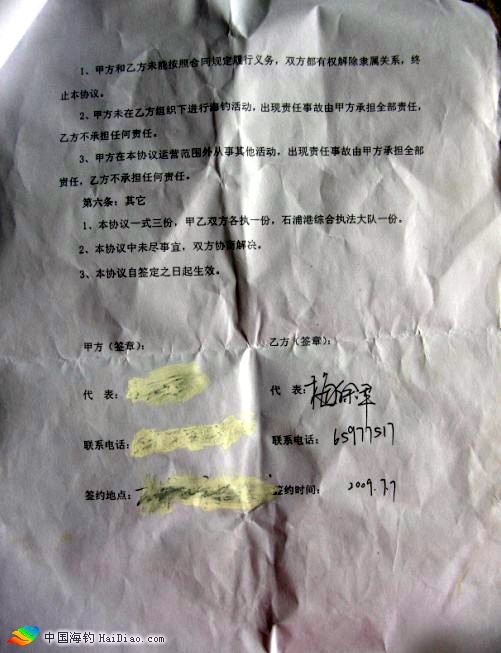 1、甲方和乙方未能按照合同规定履行义务，双方都有权解除隶属关系，终
止本协议。
2、甲方未在乙方组织下进行海钓活动，出现责任事故由甲方承担全部责任，
乙方不承担任何责任。
3、甲方在本协议运营范围外从事其他活动，出现责任事故由甲方承担全部
责任，乙方不承担任何责任。
第六条：其它
1、本协议一式三份，甲乙双方各执一份，石浦港综合执法大队一份。
2、本协议中未尽事宜，双方协商解决。
3、本协议自签定之日起生效。
甲方（签章）： 乙方（签章）：
代 表： 代 表：
联系电话： 联系电话： 65977517
签约地点： 签约时间： 2009.7.7
中国海钓 HaiDiao.com